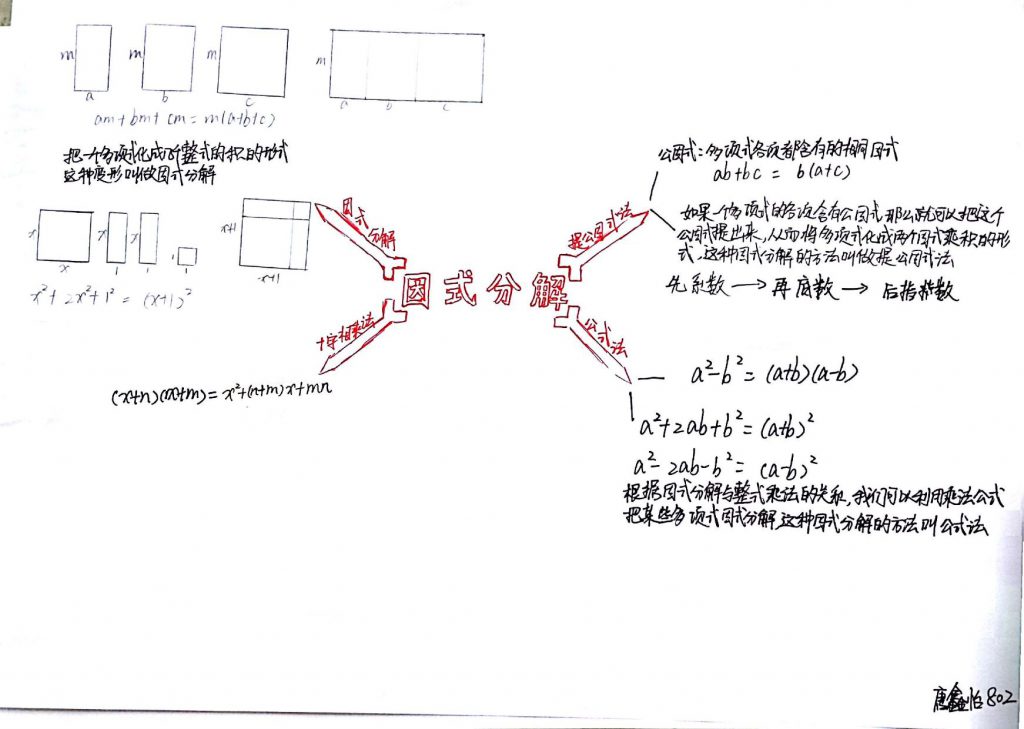 m a m b m c m a b c
am + bm + cm = m(a+b+c)
把一个多项式化成几个整式的积的形式
这种变形叫做因式分解
x x x 1 x 1 1 1 x+1 x+1
x²+2x²+1²=(x+1)²
因式分解
因式分解
提公因式法
公因式:多项式各项都含有的相同因式
ab+bc = b(a+c)
如果一个多项式的各项含有公因式,那么就可以把这个
公因式提出来,从而将多项式化成两个因式乘积的形
式,这种因式分解的方法叫做提公因式法
先系数→再底数→后指数
十字相乘法
(x+n)(x+m)=x²+(n+m)x+mn
公式法
a²-b²=(a+b)(a-b)
a²+2ab+b²=(a+b)²
a²-2ab-b²=(a-b)²
根据因式分解与整式乘法的关系,我们可以利用乘法公式
把某些多项式因式分解,这种因式分解的方法叫公式法
唐鑫怡802